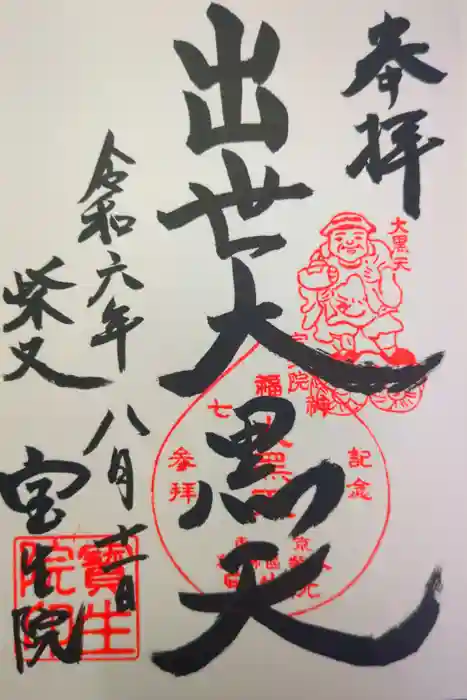 奉拝
大黒天
出世大黒天
七福神
参拝
記念
令和六年八月十一日
柴又
宝生院
寶生院印